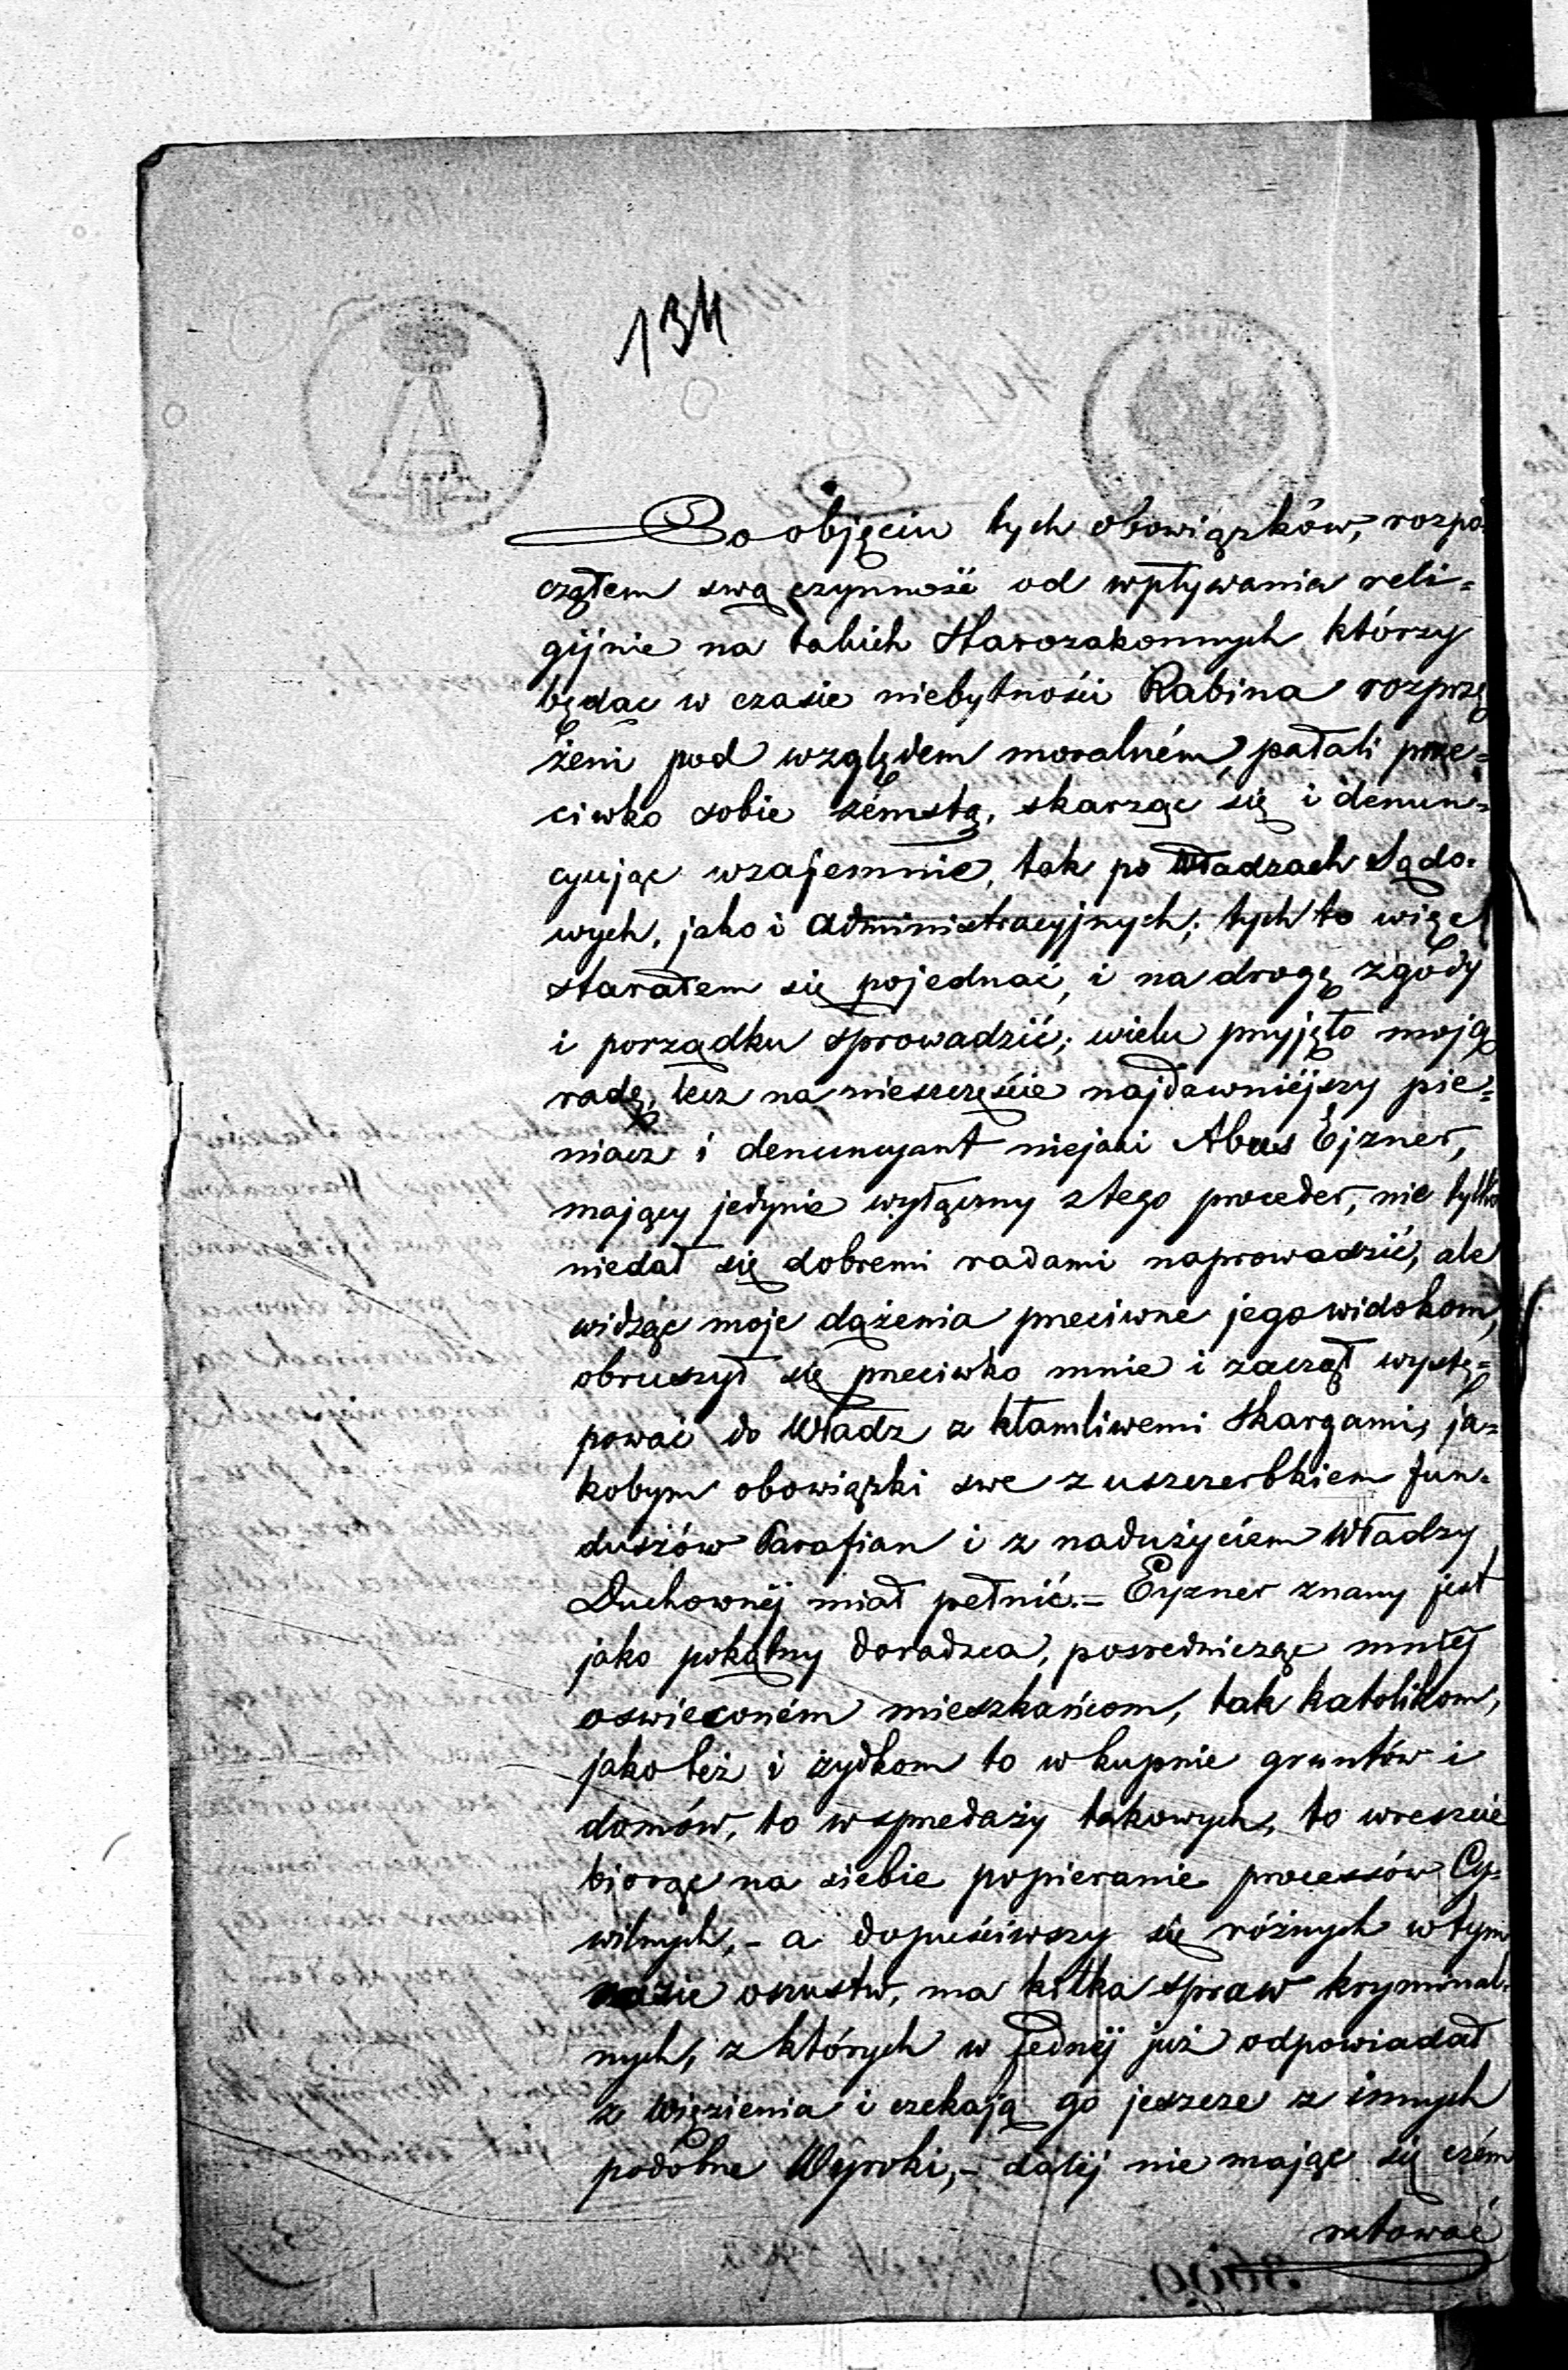 134
Po objęciu tych obowiązków, rozpo
cząłem swą czynność od wpływania reli=
gijnie na takich Starozakonnych, którzy
będąc w czasie niebytności Rabina rozprzę
żeni pod względem moralném, pałali prze=
ciwko sobie zémstą, skarząc się i denun=
cyując wzajemnie, tak po Władzach Sądo=
wych, jako i Administracyjnych; tych to więc
starałem się pojednać, i na drogę zgody
i porządku sprowadzić; wielu przyjęło moją
radę, lecz na nieszczęście najdawniéjszy pie=
niacz i denuncyant niejaki Abus Ejzner,
mający jedynie wyłączny z tego proceder, nie tylko
niedał się dobremi radami naprowadzić, ale
widząc moje dążenia przeciwne jego widokom,
obruszył się przeciwko mnie i zaczął wystę=
pować do Władz z kłamliwemi Skargami, ja=
kobym obowiązki swe z uszczerbkiem fun=
duszów Parafian i z nadużyciem Władzy
Duchownéj miał pełnić.= Eyzner znany jest
jako pokątny doradzca, pośrednicząc mniéj
oswieconém mieszkańcom, tak katolikom,
jako też i żydkom to w kupnie gruntów i
domów, to w sprzedaży takowych, to wreszcie
biorąc na siebie popieranie processów Cy=
wilnych, - a dopuściwszy się różnych w tym
razie oszustw, ma kilka spraw kryminal=
nych, z których w jednéj już odpowiadał
z więzienia i czekają go jeszcze z innych
podobne Wyroki, - daléj nie mając się czém
ratować